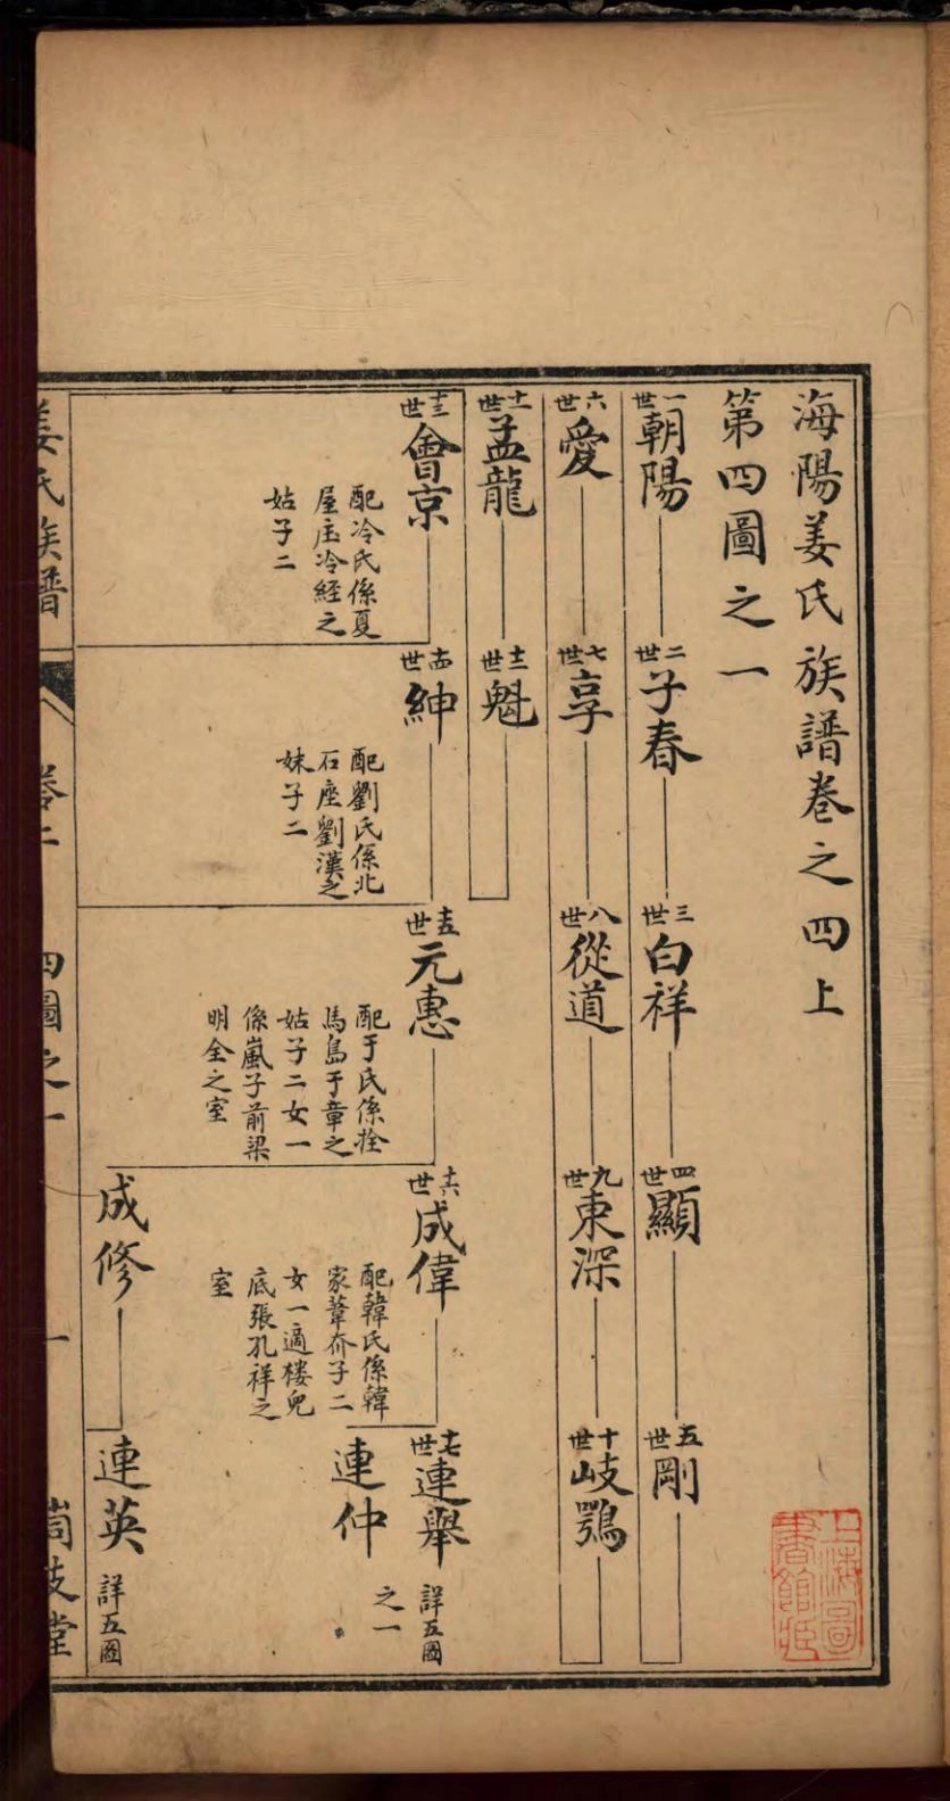 海陽姜氏族譜卷之四上
第四圖之一
一世 朝陽
二世 子春
三世 白祥
四世 顯
五世 剛
六世 愛
七世 享
八世 從道
九世 東深
十世 岐鶚
十一世 孟龍
十二世 魁
十三世 會京
配冷氏係夏
屋庄冷経之
姑子二
十四世 紳
配劉氏係北
石座劉漢之
妹子二
十五世 元惠
配于氏係拴
馬島于章之
姑子二女一
係嵐子前梁
明全之室
十六世 成偉
配韓氏係韓
家葦夼子二
女一適楼兒
底張孔祥之
室
十七世 連舉 詳五圖
之一
連仲
成修
連英 詳五圖
姜氏族譜
卷
四圖之一
一
上海圖
書館藏